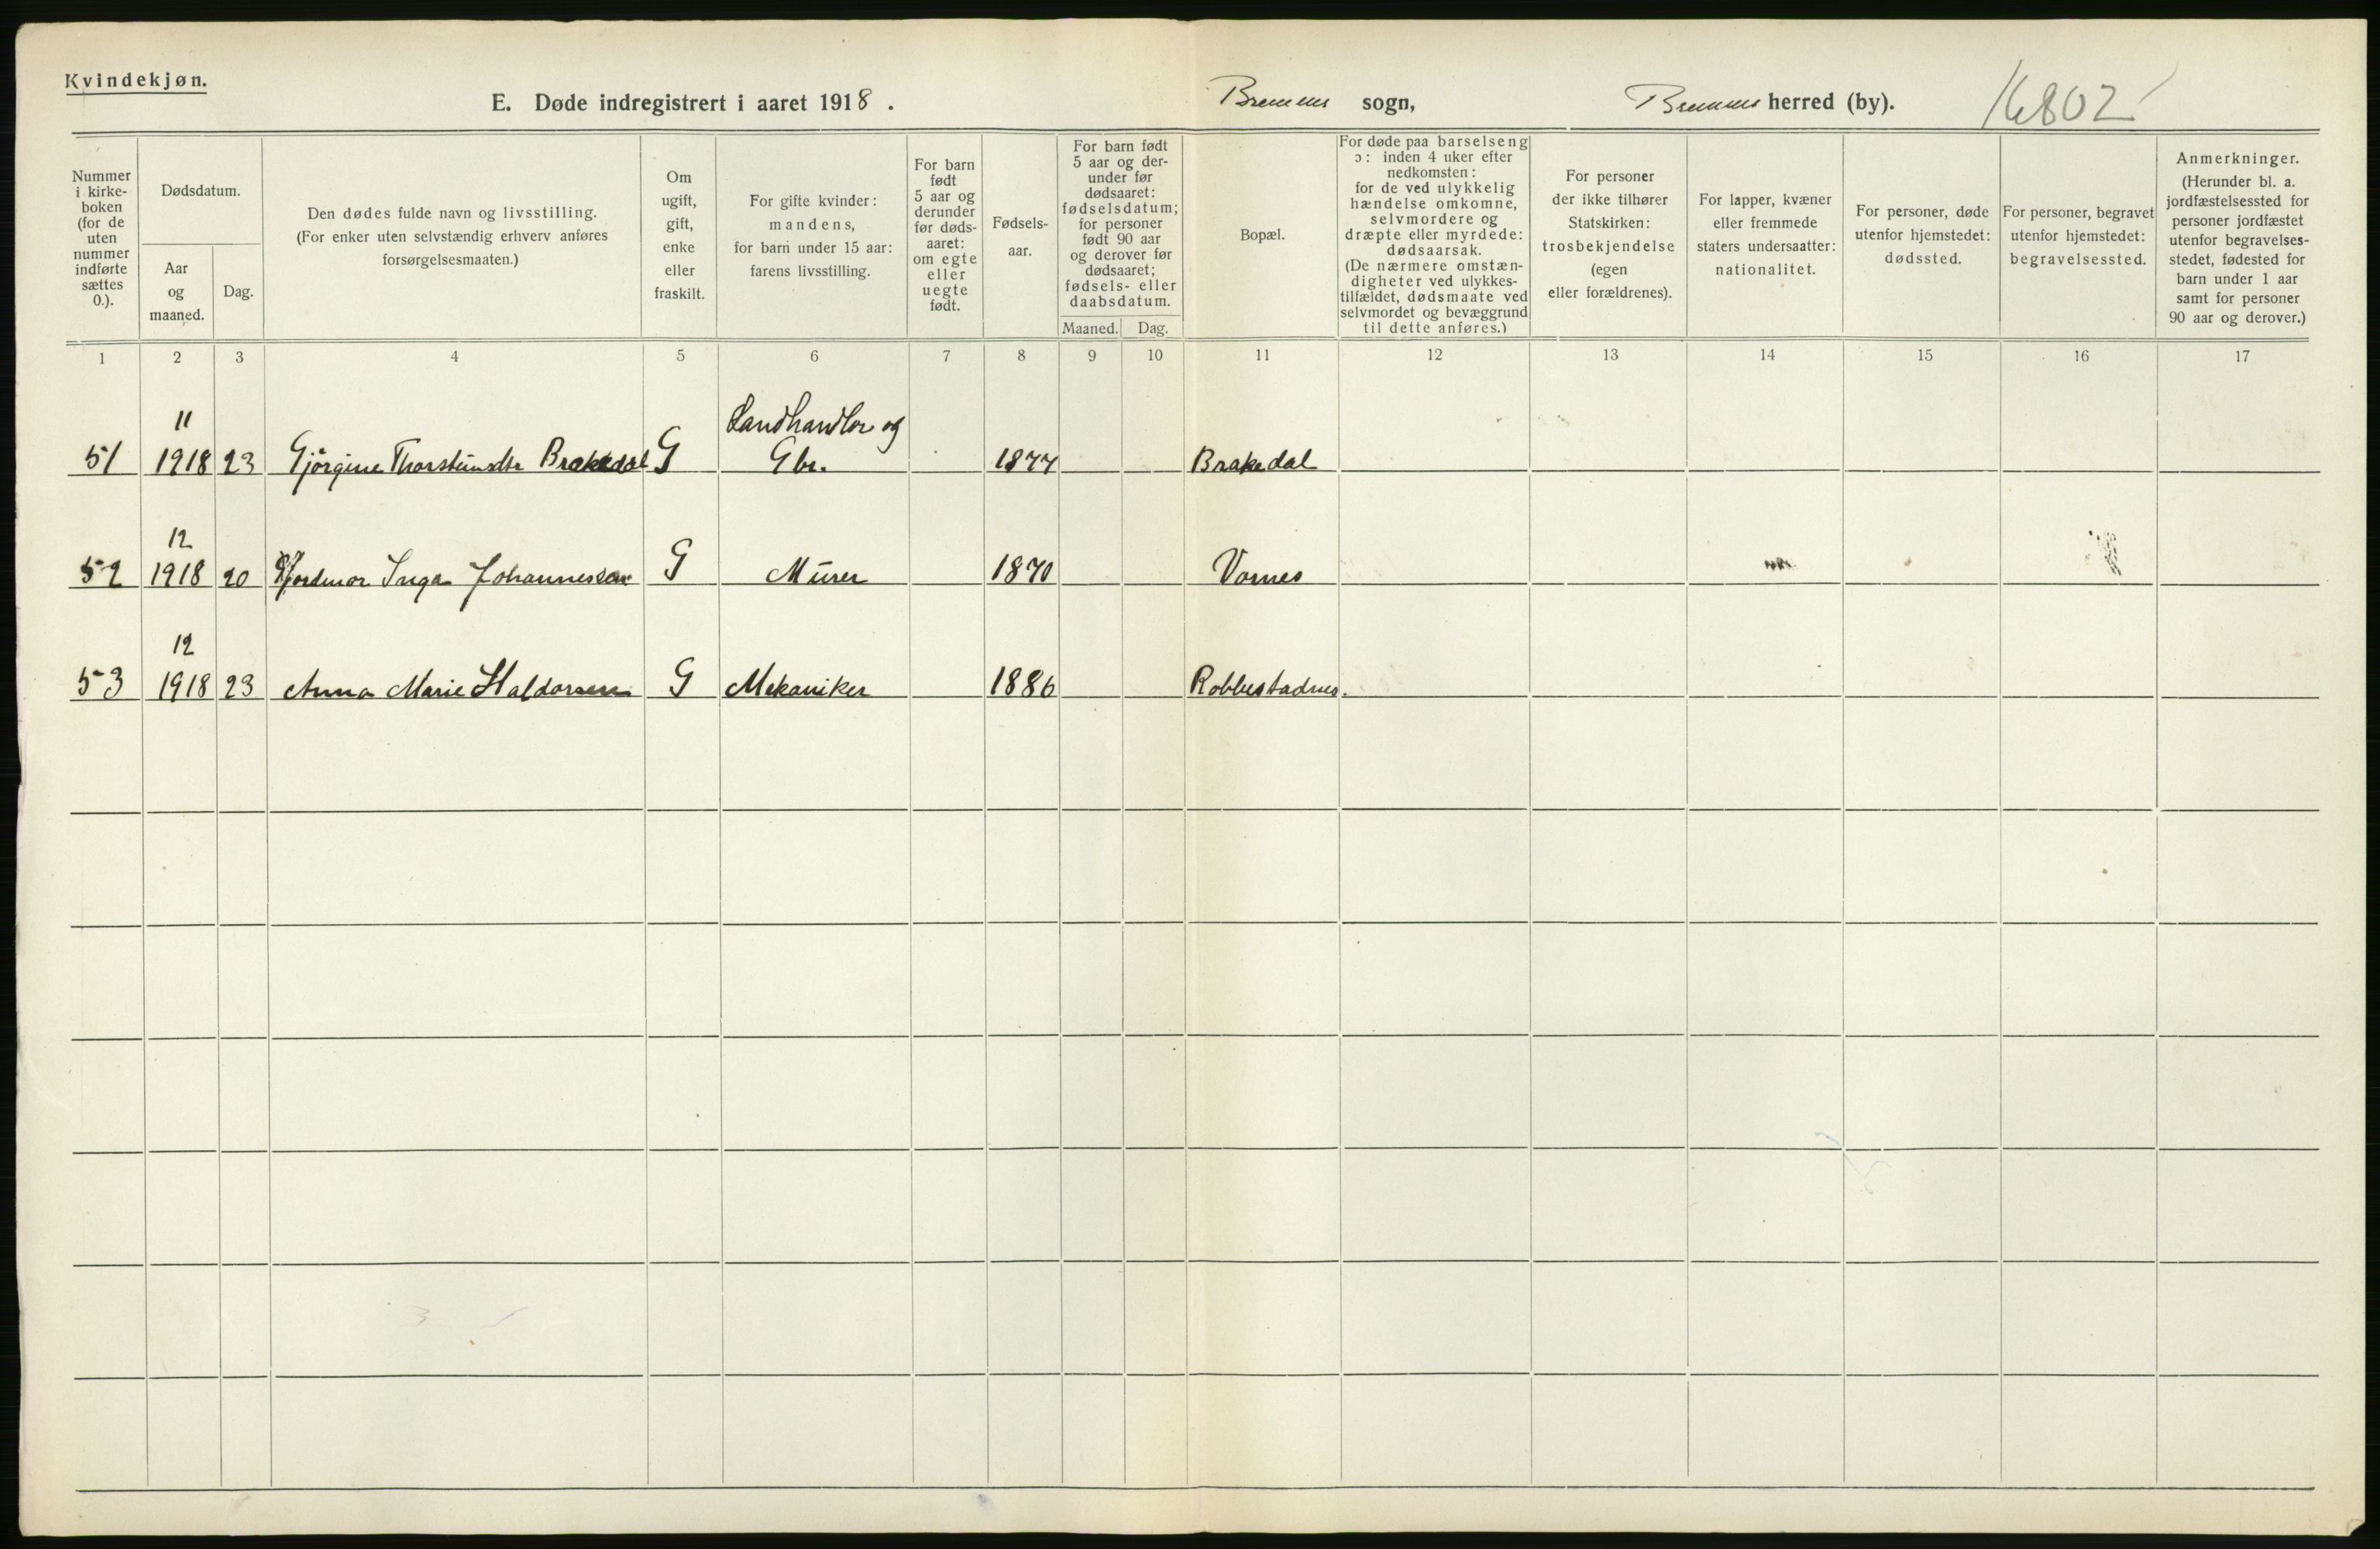 Kvindekjøn.
E. Døde indregistrert i aaret 1918.
Bremnes sogn, Bremnes herred (by). 16802
Nummer
i kirke-
boken
(for de
uten
nummer
indførte
sættes
0.).
Dødsdatum.
Aar
og
maaned.
Dag.
Den dødes fulde navn og livsstilling.
(For enker uten selvstændig erhverv anføres
forsørgelsesmaaten.)
Om
ugift,
gift,
enke
eller
fraskilt.
For gifte kvinder:
mandens,
for barn under 15 aar:
farens livsstilling.
For barn
født
5 aar og
derunder
før døds-
aaret:
om egte
eller
uegte
født.
Fødsels-
aar.
For barn født
5 aar og der-
under før
dødsaaret:
fødselsdatum;
for personer
født 90 aar
og derover før
dødsaaret;
fødsels- eller
daabsdatum.
Maaned. Dag.
Bopæl.
For døde paa barselseng
ɔ: inden 4 uker efter
nedkomsten:
for de ved ulykkelig
hændelse omkomne,
selvmordere og
dræpte eller myrdede:
dødsaarsak.
(De nærmere omstæn-
digheter ved ulykkes-
tilfældet, dødsmaate ved
selvmordet og bevæggrund
til dette anføres.)
For personer
der ikke tilhører
Statskirken:
trosbekjendelse
(egen
eller forældrenes).
For lapper, kvæner
eller fremmede
staters undersaatter:
nationalitet.
For personer, døde
utenfor hjemstedet:
dødssted.
For personer, begravet
utenfor hjemstedet:
begravelsessted.
Anmerkninger.
(Herunder bl. a.
jordfæstelsessted for
personer jordfæstet
utenfor begravelses-
stedet, fødested for
barn under 1 aar
samt for personer
90 aar og derover.)
1 2 3 4 5 6 7 8 9 10 11 12 13 14 15 16 17
11 Landhandler og
51 1918 23 Gjörgine Thorsteinsdtr Brakedal G Gbr. 1877 Brakedal
12
52 1918 20 Inga Johannessen G Murer 1870 Vornes
12
53 1918 23 Anna Marie Haldorsen G Mekaniker 1886 Robbestadnes.